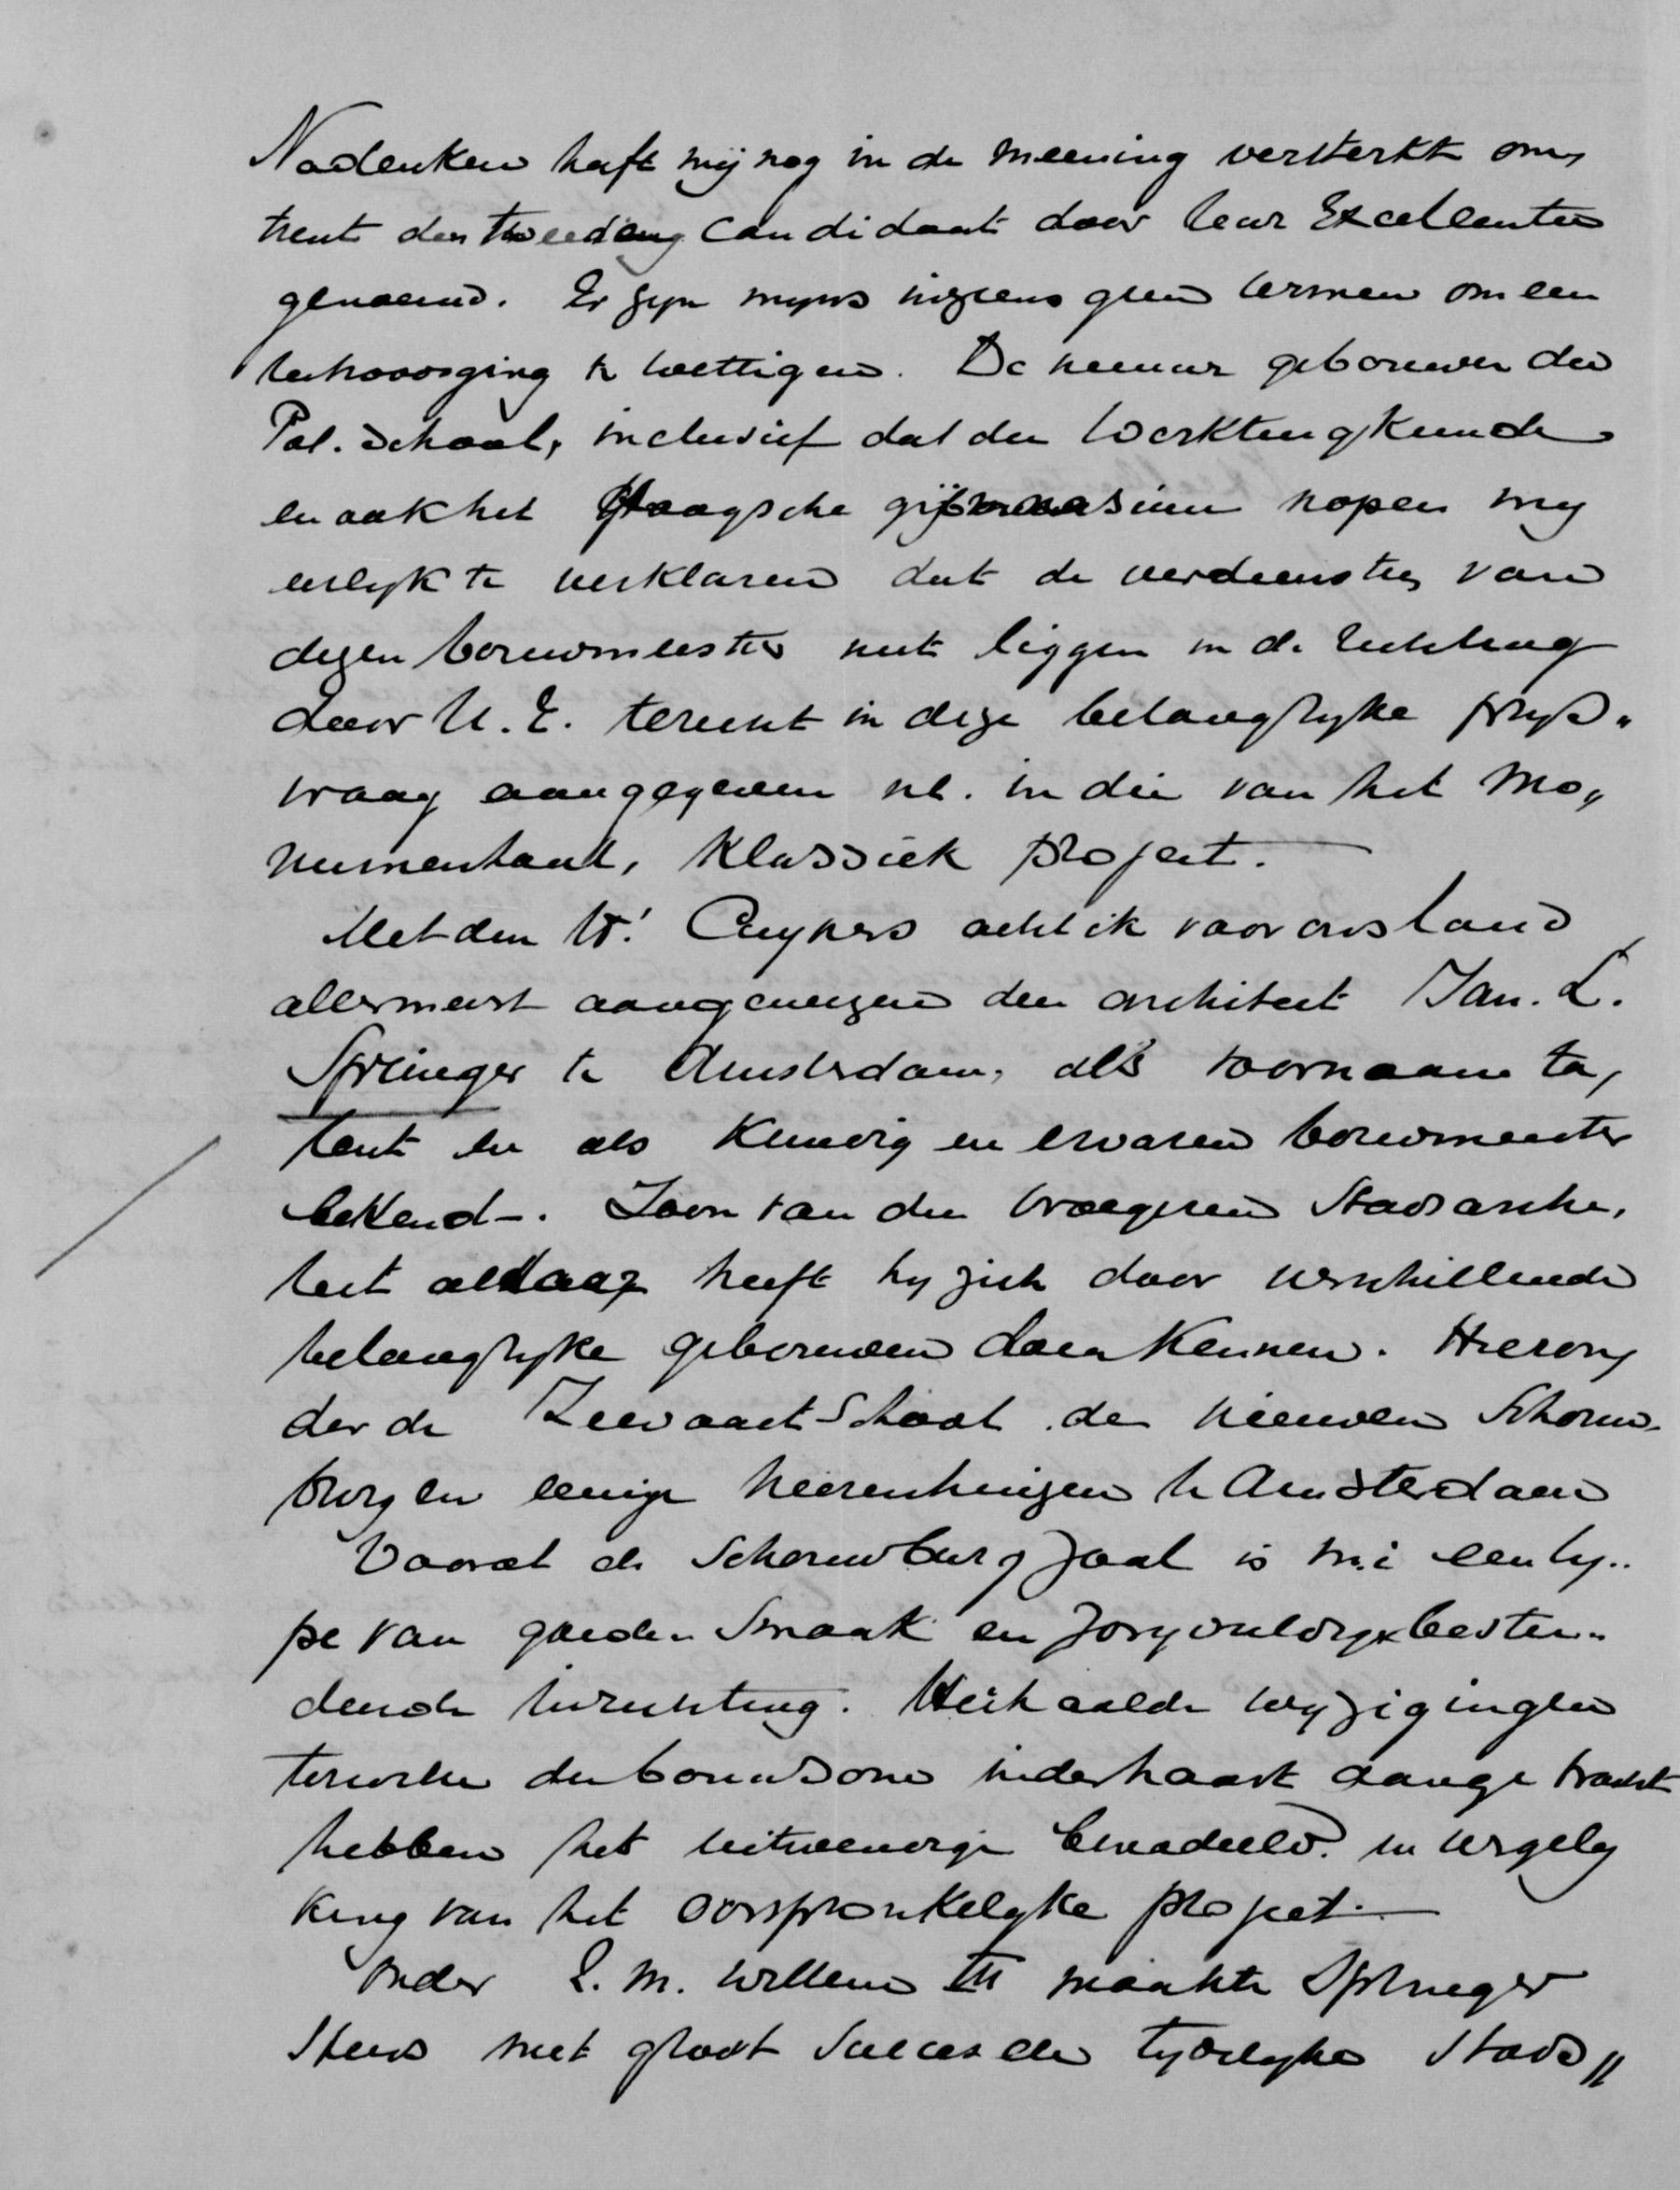 Nadenken heeft mij nog in de meening versterkt om„
trent den tweeden candidaat door Uwe Excellentie
genoemd. Er zijn mijns inziens geen termen om een
uitnoodiging te wettigen. De nieuwe gebouwen der
Pol. School, inclusief dat der Werktuigkunde
en ook het Haagsche gijmnasium nopen mij
eerlijk te verklaren dat de verdiensten van
dezen bouwmeester niet liggen in de richting
door U. E. terecht in deze belangrijke prijs„
vraag aangegeven nl. in die van het mo„
numentaal, klassiek project.
Met den Hr. Cuypers acht ik voor ons land
allermeest aangewezen den architect Jan. L.
Springer te Amsterdam, als voornaam ta„
lent en als kundig en ervaren bouwmeester
bekend. Zoon van den vroegeren Stadsarchi„
tect aldaar heeft hij zich door verschillende
belangrijke gebouwen doen kennen. Hieron„
der de Zeevaart-School de nieuwen Schouw„
burg en eenige heerenhuizen te Amsterdam
Vooral de Schouwburgzaal is m.i een ty„
pe van goeden smaak en zorgvuldige
inrichting. Herhaalde wijzigingen
den bouwsom inderhaast aangebracht
hebben het uitwendige benadeeld in vergelij
king van het oorspronkelijke project.
Onder Z. M. Willem III maakte Springer
steeds met groot succes de tijdelijke Stads„